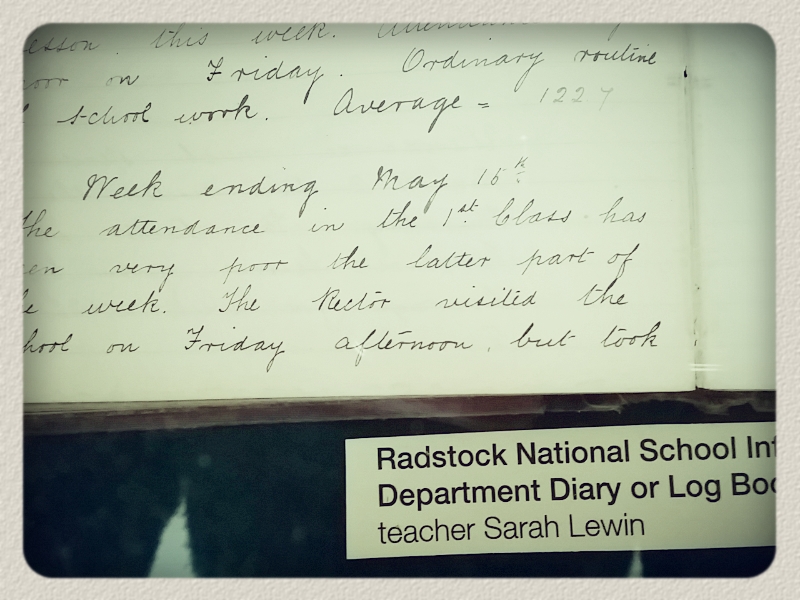 esson. this week.
oor on Friday. Ordinary routine
school work. Average = 122.7
Week ending May 15th
he attendance in the 1st Class has
en very poor the latter part of
e week. The Rector visited the
hool on Friday afternoon, but took
Radstock National School Inf
Department Diary or Log Boo
teacher Sarah Lewin